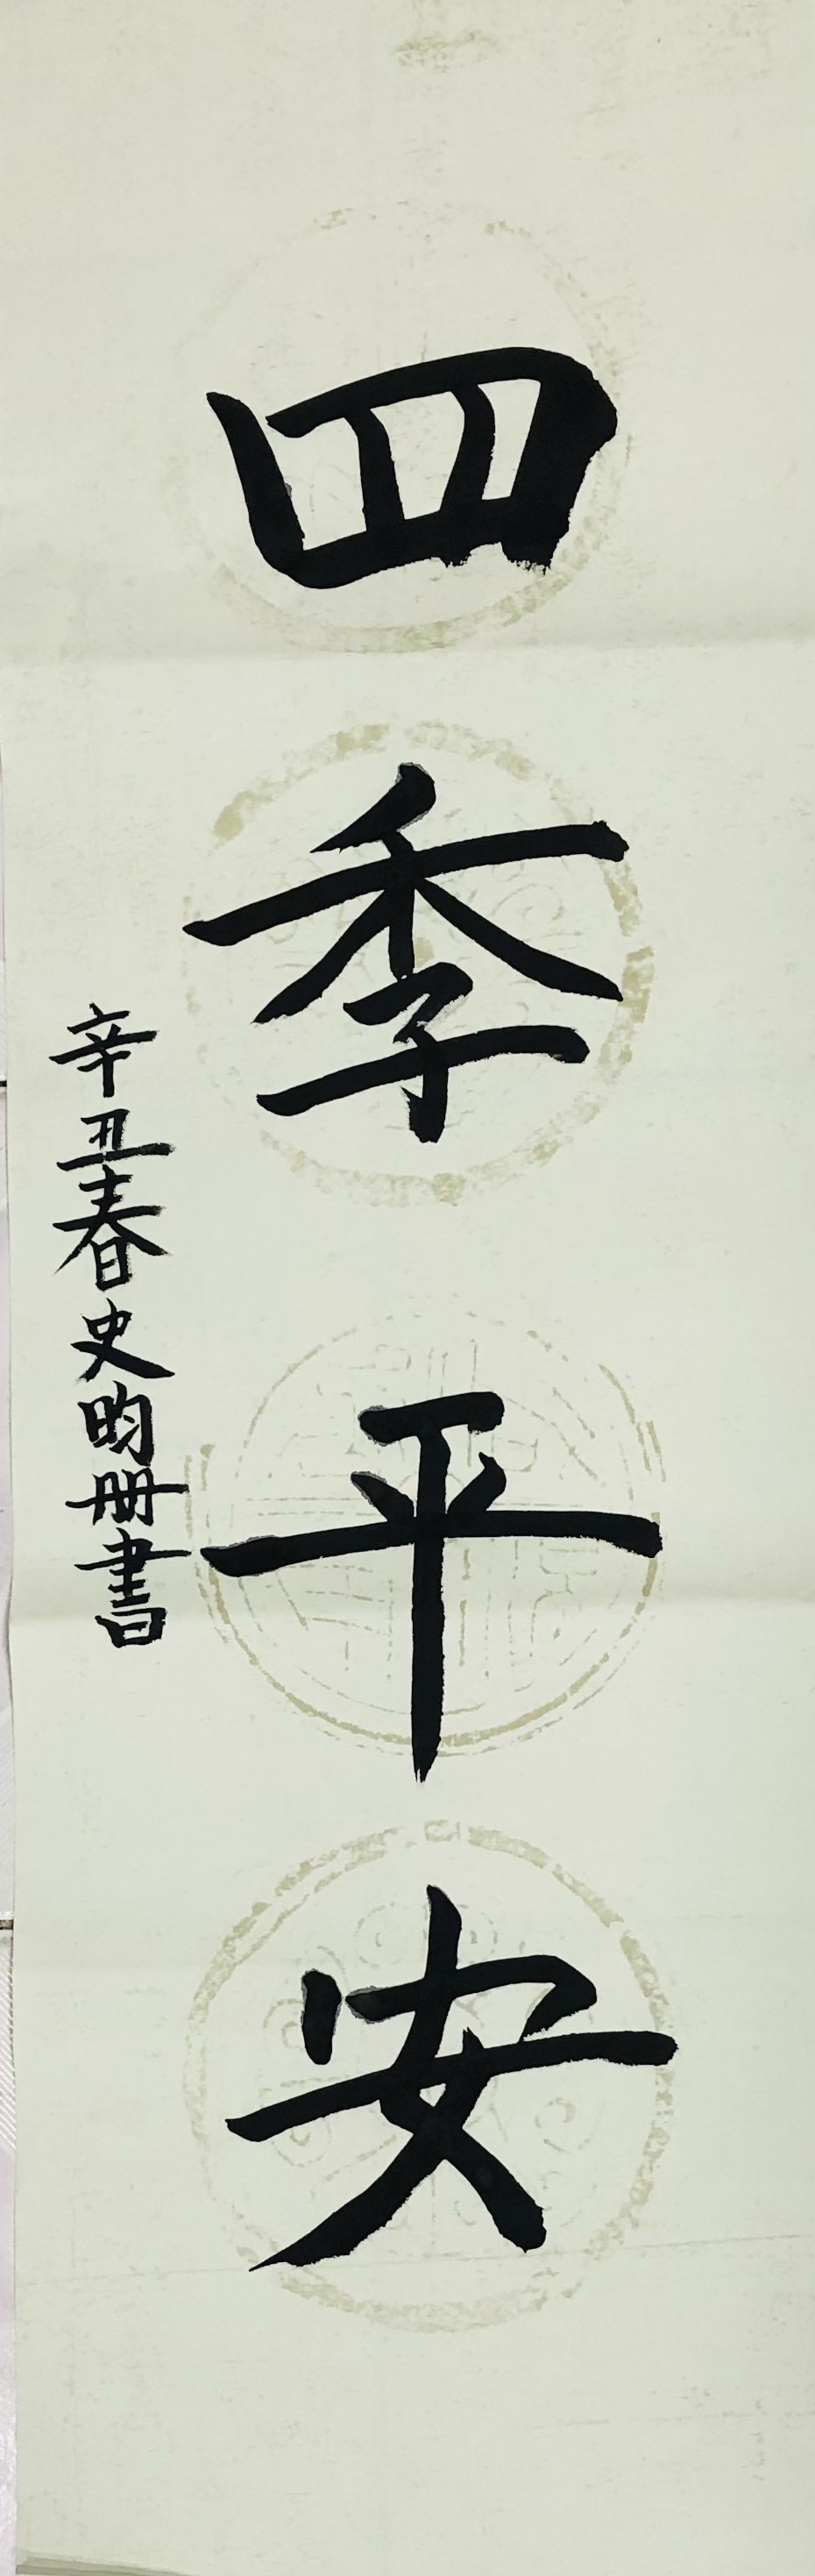 四季平安
辛丑春史昀册書